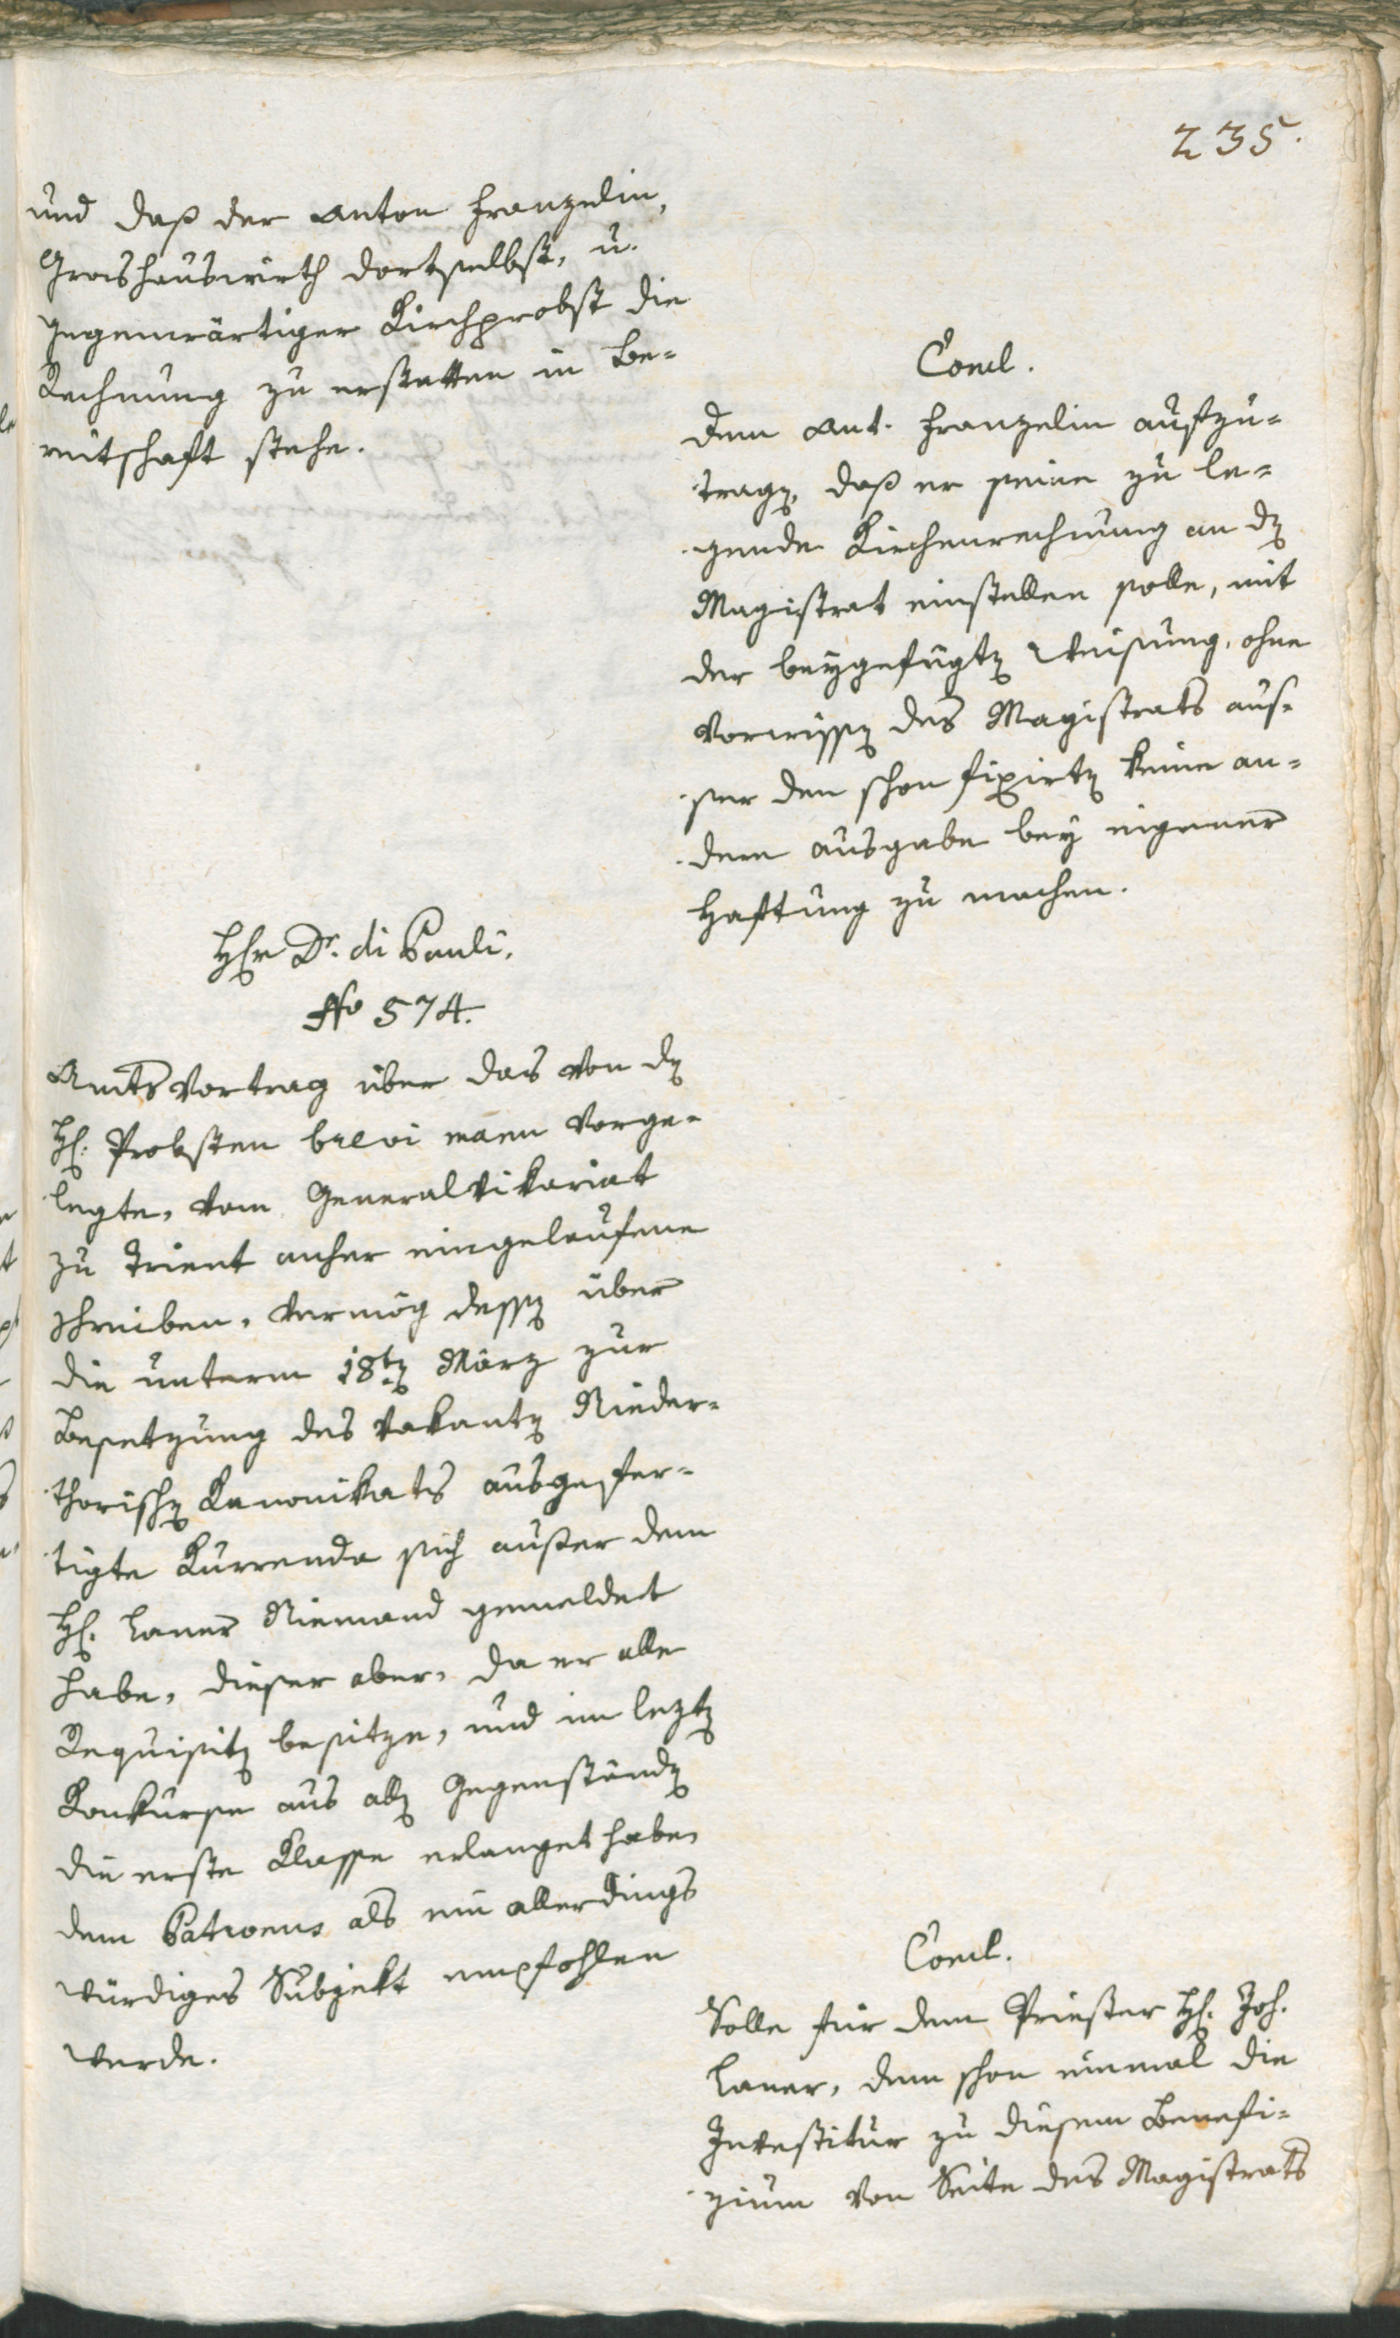 235.
und daß der Anton Franzelin,
Groshauswirth dortselbst, u.
gegenwärtiger Kirchprobst die
Rechnung zu erstatten in Be=
reitschaft stehe.
Concl.
Dem Ant. Franzelin aufzu=
tragen, daß er seine zu le=
gende Kirchenrechnung an den
Magistrat einstellen solle, mit
der beygefügten Weisung, ohne
Vorwissen des Magistrats aus=
ser den schon fixirten keine an=
dere Ausgabe bey eigener
Haftung zu machen.
Herr Dr. di Pauli.
No 574.
Amtsvortrag über das von dem
H: Probsten brevi manu vorge=
legte, vom Generalvikariat
zu Trient anher eingelaufene
Schreiben, vermög dessen über
die unterm 18ten März zur
Besetzung des vakanten Nieder=
thorischen Kanonikats ausgefer=
tigte Kurrenda sich außer dem
H: Laner Niemand gemeldet
habe, dieser aber, da er alle
Requisiten besitze, und im lezten
Konkurse aus allen Gegenständen
die erste Klasse erlanget habe,
dem Patronus als ein allerdings
würdiges Subjekt empfohlen
werde.
Concl.
Solle für dem Priester H: Joh.
Laner, dem schon einmal die
Investitur zu diesem Benefi=
zium von Seite des Magistrats